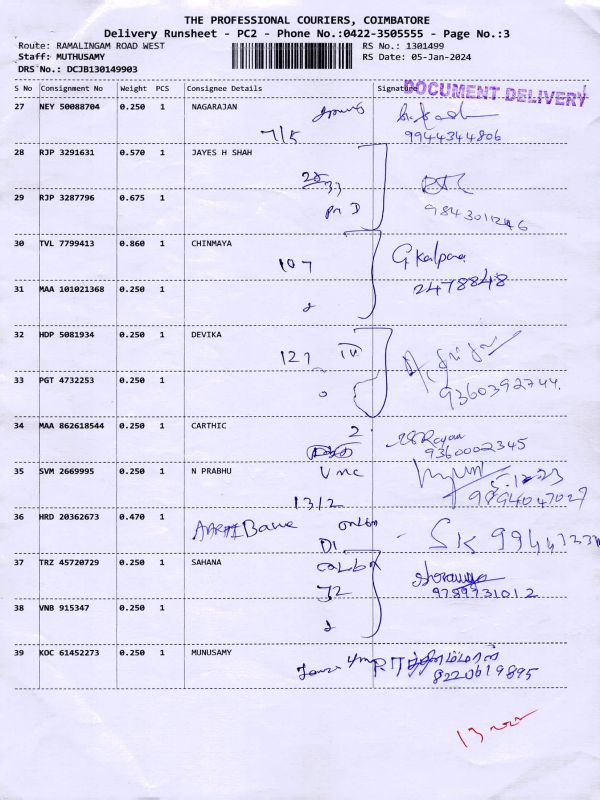 THE PROFESSIONAL COURIERS, COIMBATORE
Delivery Runsheet - PC2 - Phone No.:0422-3505555 - Page No.:3
Route: RAMALINGAM ROAD WEST RS No.: 1301499
Staff: MUTHUSAMY RS Date: 05-Jan-2024
DRS No.: DCJB130149903
S No Consignment No Weight PCS Consignee Details Signature DOCUMENT DELIVERY
27 NEY 50088704 0.250 1 NAGARAJAN
7/5 9944344806
28 RJP 3291631 0.570 1 JAYES H SHAH
29 RJP 3287796 0.675 1
9843011246
30 TVL 7799413 0.860 1 CHINMAYA
107 G Kalpana
31 MAA 101021368 0.250 1 2478848
32 HDP 5081934 0.250 1 DEVIKA
127
33 PGT 4732253 0.250 1 9360392744.
34 MAA 862618544 0.250 1 CARTHIC 2
9360002345
35 SVM 2669995 0.250 1 N PRABHU
1312 9894047027
36 HRD 20362673 0.470 1
D1 SK
37 TRZ 45720729 0.250 1 SAHANA
J2 9789731012
38 VNB 915347 0.250 1
39 KOC 61452273 0.250 1 MUNUSAMY
8220619895